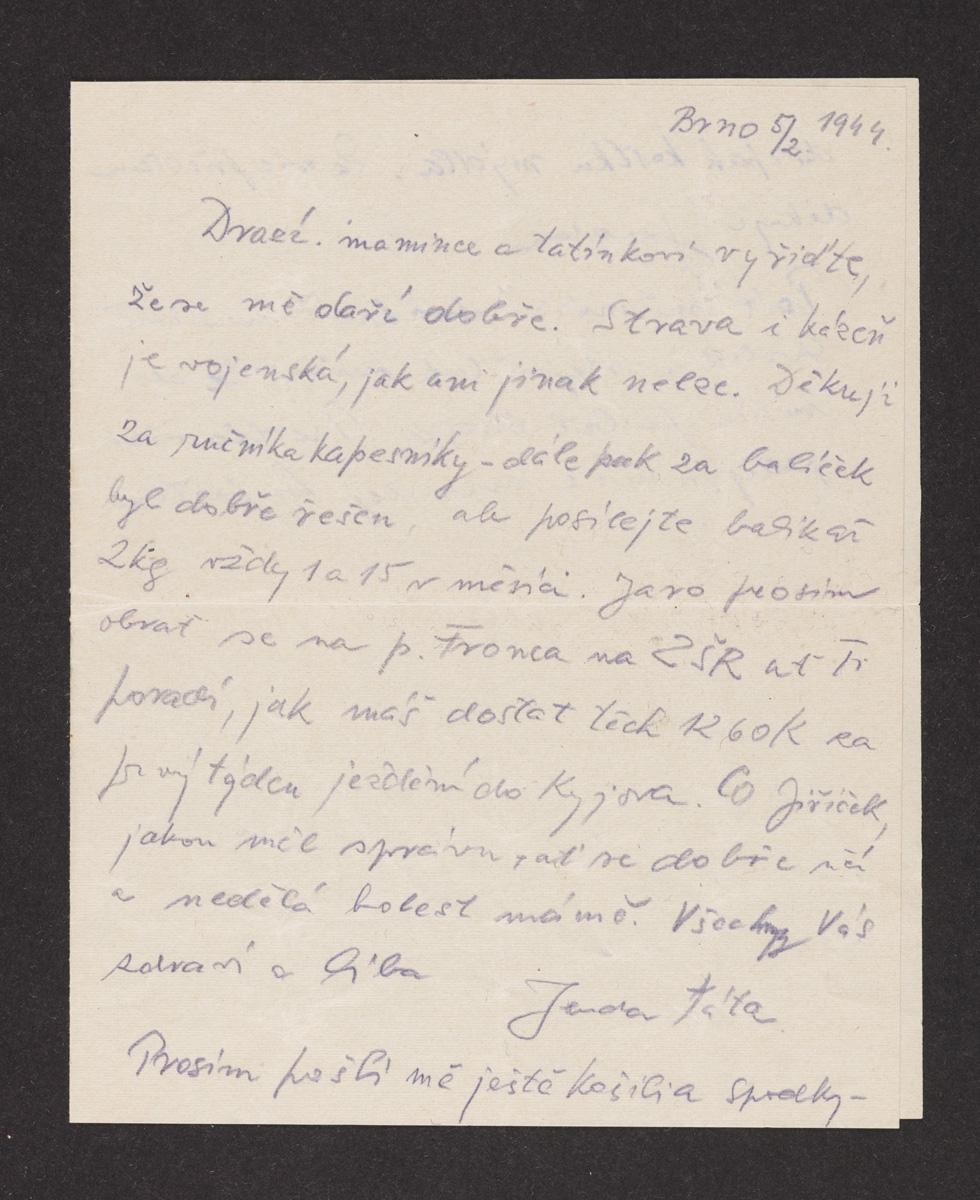 Brno 5/2 1944.
Drazí. mamince a tatínkovi vyřiďte,
že se mě daří dobře. Strava i kázeň
je vojenská, jak ani jinak nelze. Děkuji
za ručníka kapesníky - dále pak za balíček
byl dobře řešen, ale posílejte balík až
2kg vždy 1 a 15 v měsíci. Jaro prosím
obrať se na p. Fronca na ZŠR ať Ti
poradí, jak máš dostat těch 1260K za
prvý týden ježdění do Kyjova. Co Jiříček,
jakou měl správu, ať se dobře učí
a nedělá bolest mámě. Všechny Vás
zdraví a líbá
Jenda táta
Prosím pošli mě ještě košili a spodky -